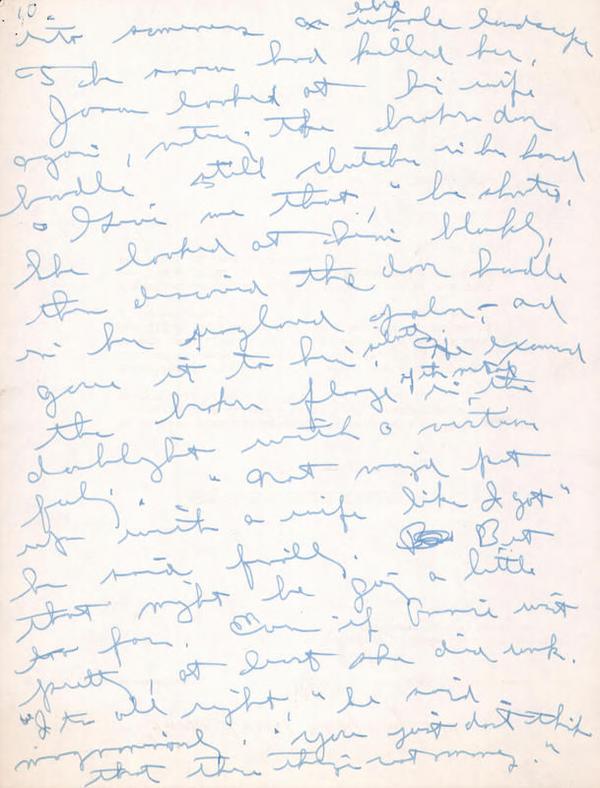 10
into someness the whole landscape
had killed her.
Jason looked at his wife
again, noting the broken door
handle still clutched in her hand
"Give me that," he shouted.
She looked at him blankly,
then discovered the door handle
in her gloved palm, and
gave it to him. He examined
the broken flange of the metal in the
doublelight with a virtuous
fully. "Not many'd put
up with a wife like I got"
he said finally. But
that might be going a little
far. Even if wasn't
pretty, at least she did work.
"It's all right," he said
magnanimously. "You just don't think
that these things cost money."